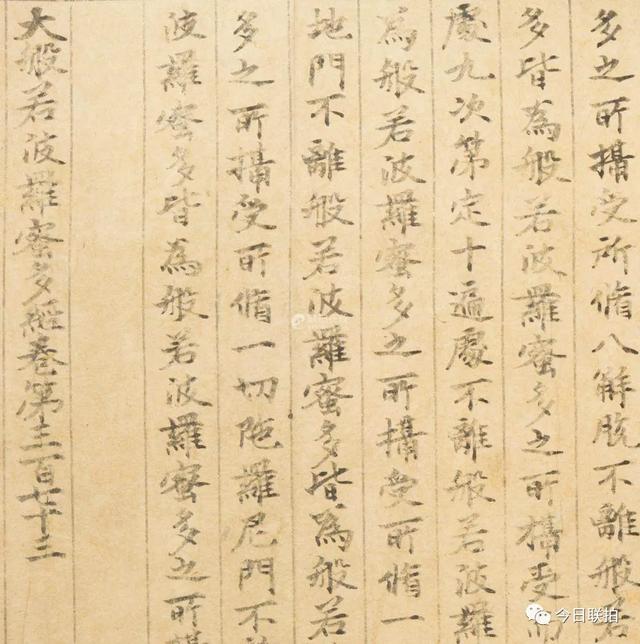 多之所攝受所脩八解脫不離般若
多皆為般若波羅蜜多之所攝受
處九次第定十遍處不離般若波羅
為般若波羅蜜多之所攝受所脩一
地門不離般若波羅蜜多皆為般若
多之所攝受所脩一切陁羅尼門不
波羅蜜多皆為般若波羅蜜多之所
大般若波羅蜜多經卷第三百七十三
今日联拍